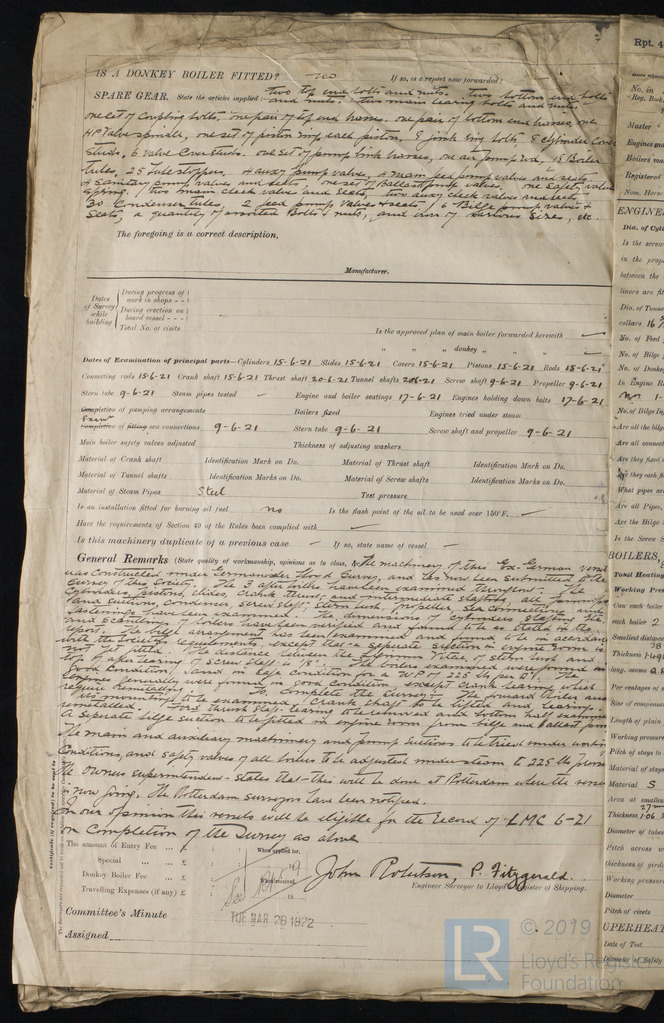 IS A DONKEY BOILER FITTED? no If so, is a report now forwarded?
SPARE GEAR. State the articles supplied :— two top end bolts and nuts. two bottom end bolts
and nuts. two main bearing bolts and nuts.
one set of coupling bolts, one pair of top end brasses. one pair of bottom end brasses, one
HP Valve spindle, one set of piston rings each piston. 8 junk ring bolts 8 cylinder Cover
studs, 6 valve Cover studs. one set of pump link brasses, one air pump rod, 15 Boiler
tubes, 25 tube stoppers, 4 auxy pump valves, 4 main feed pump valves and seats
4 sanitary pump valves and seats, one set of Ballast pump valves, one Safety valve
spring, two main check valves and seats, two auxy check valves and seats
30 Condenser tubes, 2 feed pump valves & seats, 6 Bilge pump valves &
Seats, a quantity of assorted Bolts & nuts, and iron of various sizes, etc.
The foregoing is a correct description,
Manufacturer.
Dates of Survey while building
During progress of work in shops - -
During erection on board vessel - - -
Total No. of visits
Is the approved plan of main boiler forwarded herewith
" " " donkey " "
Dates of Examination of principal parts—Cylinders 15-6-21 Slides 15-6-21 Covers 15-6-21 Pistons 15-6-21 Rods 15-6-21
Connecting rods 15-6-21 Crank shaft 15-6-21 Thrust shaft 20-6-21 Tunnel shafts 20-6-21 Screw shaft 9-6-21 Propeller 9-6-21
Stern tube 9-6-21 Steam pipes tested – Engine and boiler seatings 17-6-21 Engines holding down bolts 17-6-21
Completion of pumping arrangements Boilers fixed Engines tried under steam
Completion of fitting sea connections 9-6-21 Stern tube 9-6-21 Screw shaft and propeller 9-6-21
Main boiler safety valves adjusted Thickness of adjusting washers
Material of Crank shaft Identification Mark on Do. Material of Thrust shaft Identification Mark on Do.
Material of Tunnel shafts Identification Marks on Do. Material of Screw shafts Identification Marks on Do.
Material of Steam Pipes Steel Test pressure
Is an installation fitted for burning oil fuel no Is the flash point of the oil to be used over 150°F. –
Have the requirements of Section 49 of the Rules been complied with –
Is this machinery duplicate of a previous case – If so, state name of vessel –
General Remarks (State quality of workmanship, opinions as to class, &c. The machinery of this Ex-German vessel
was constructed under Germanischer Lloyd Survey, and has now been submitted to the
Survey of this Society. The 3 after boilers have been examined throughout. The
Cylinders, pistons, slides, crank, thrust, and intermediate shafting and pumps
and suctions, Condenser, screw shaft, stern bush, propeller, sea connections and
fastenings have been examined. The dimensions of cylinders, shafting, etc.
and scantlings of boilers have been verified and found to be as stated in this
report. The bilge arrangement has been examined and found to be in accordance
with the Society's requirements, except that a seperate suction in engine room is
not yet fitted. The distance between the lignum vitae of stern bush and
top of after bearing of Screw shaft is 1/8". The boilers examined were found in
good condition, and in safe condition for a W.P of 225 lbs per □". The
engines generally were found in good condition except Crank bearings which
require remetalling. To complete the Survey:— The forward boilers and
its mounting to be examined, Crank shaft to be lifted and bearings
remetalled. Ford thrust shaft bearing to be removed and bottom half examined
A seperate bilge suction to be fitted in engine room from bilge and ballast pump
The main and auxiliary machinery and pump suctions to be tried under working
Conditions, and safety valves of all boilers to be adjusted under steam to 225 lbs pressure
The owners superintendent states that this will be done at Rotterdam where the vessel
is now going. The Rotterdam surveyors have been notified.
In our opinion this vessels will be eligible for the record of LMC 6-21
on Completion of the Survey as above
The amount of Entry Fee ... £ : : When applied for,
Special ... ... £ : :
Donkey Boiler Fee ... £ : : When received,
Travelling Expenses (if any) £ : :
John Robertson, P. Fitzgerald
Engineer Surveyor to Lloyd's Register of Shipping.
Committee's Minute
TUE MAR 28 1922
Assigned
Certificate (if required) to be sent to
Rpt. 4
No. in
Reg. Book
Master
Engines and
Boilers ma
Registered
Nom. Horse
ENGINE
Dia. of Cyli
Is the screw
in the prope
between the
liners are fit
Dia. of Tunne
collars 16
No. of Feed
No. of Donke
In Engine R
No. of Bilge In
Are all the bilge
Are all connect
Are they fixed
Are they each fi
What pipes ar
Are all Pipes,
Are the Bilge
Is the Screw S
BOILERS,
Total Heating
Working Pres
Can each boiler
each boiler 2
Smallest distance
Thickness
long. seams
Per centages of s
Size of compensa
Length of plain
Working pressure
Pitch of stays to
Material of stays
Material S
Area at smalles
Thickness
Diameter of tubes
Pitch across w
thickness of girde
Working pressure
Diameter
Pitch of rivets
UPERHEAT
Date of Test
Diameter of Safety
LR
© 2019
Lloyd's Register
Foundation